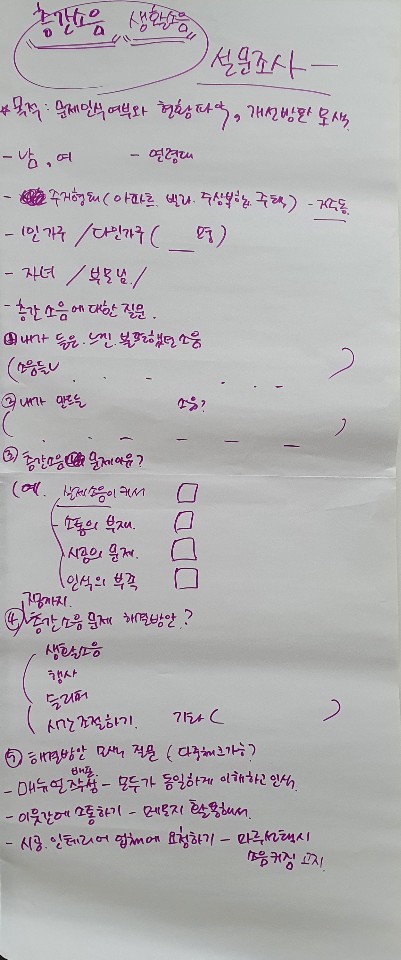 층간소음 생활소음
설문조사 —
* 목적: 문제인식여부와 현황파악, 개선방안 모색
- 남, 여 - 연령대
- 주거형태 (아파트. 빌라. 주상복합. 주택) - 거주동
- 1인가구 / 다인가구 ( 명)
- 자녀 / 부모님 /
- 층간소음에 대한 질문.
① 내가 들은. 느낀. 불편했던 소음
(소음들
② 내가 만드는 소음?
( )
③ 층간소음 문제이유?
(예. 실제소음이 커서 □
- 소통의 부재. □
시공의 문제. □
인식의 부족 □
지금까지.
④ 층간소음문제 해결방안?
생활소음
행사
슬리퍼
시간조절하기. 기타 ( )
⑤ 해결방안 모색 질문 (다중체크가능?
배포
- 매뉴얼작성 - 모두가 동일하게 이해하고 인식.
- 이웃간에 소통하기 - 메모지 활용해서.
- 시공.인테리어 업체에 요청하기 - 마루선택시
소음커짐 고지.